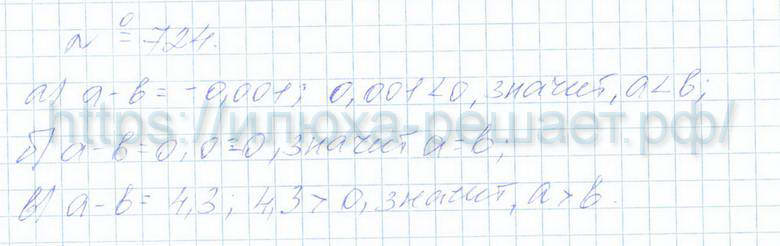 № 724.
а) а-в = -0,001; 0,001<0, значит, а<в;
https://илюха-решает.рф/
б) а-в=0, 0=0, значит а=в;
в) а-в= 4,3; 4,3>0, значит, а>в.